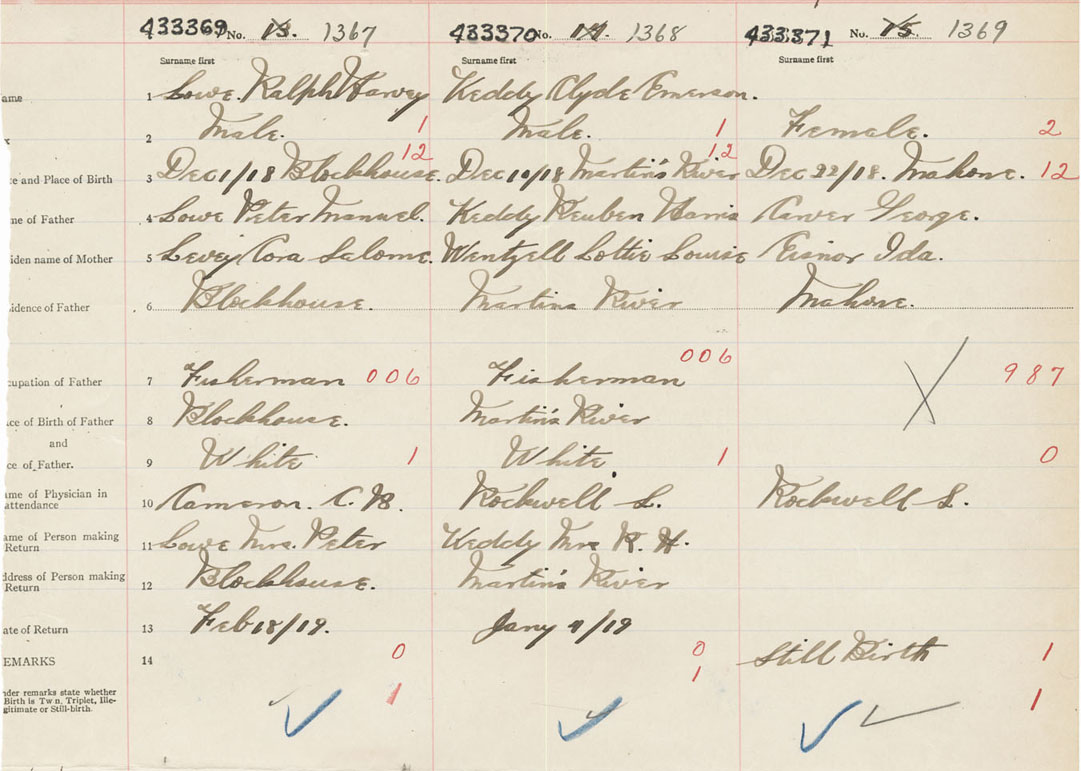 433369 No. 13. 1367 433370 No. 14. 1368 433371 No. 15. 1369
Surname first Surname first Surname first
ame 1 Lowe Ralph Harvey Keddy Clyde Emerson.
x 2 Male. 1 Male. 1 Female. 2
12 12
te and Place of Birth 3 Dec 1/18 Blockhouse. Dec 10/18 Martin's River Dec 22/18. Mahone. 12
me of Father 4 Lowe Peter Manuel. Keddy Reuben Harris Carver George.
iden name of Mother 5 Levey Cora Salome. Wentzell Lottie Louise Eisnor Ida.
sidence of Father 6 Blockhouse. Martins River Mahone.
006
cupation of Father 7 Fisherman 006 Fisherman 987
ce of Birth of Father 8 Blockhouse. Martin's River
and
ce of Father. 9 White 1 White 1 0
ame of Physician in
attendance 10 Cameron. C. Rockwell L. Rockwell L.
ame of Person making
Return 11 Lowe Mrs. Peter Keddy Mrs R. H.
ddress of Person making
Return 12 Blockhouse. Martin's River
ate of Return 13 Feb 18/19. Jany /19
EMARKS 14 0 0 Still Birth 1
1
nder remarks state whether
Birth is Tw n, Triplet, Ille-
gitimate or Still-birth. 1 1